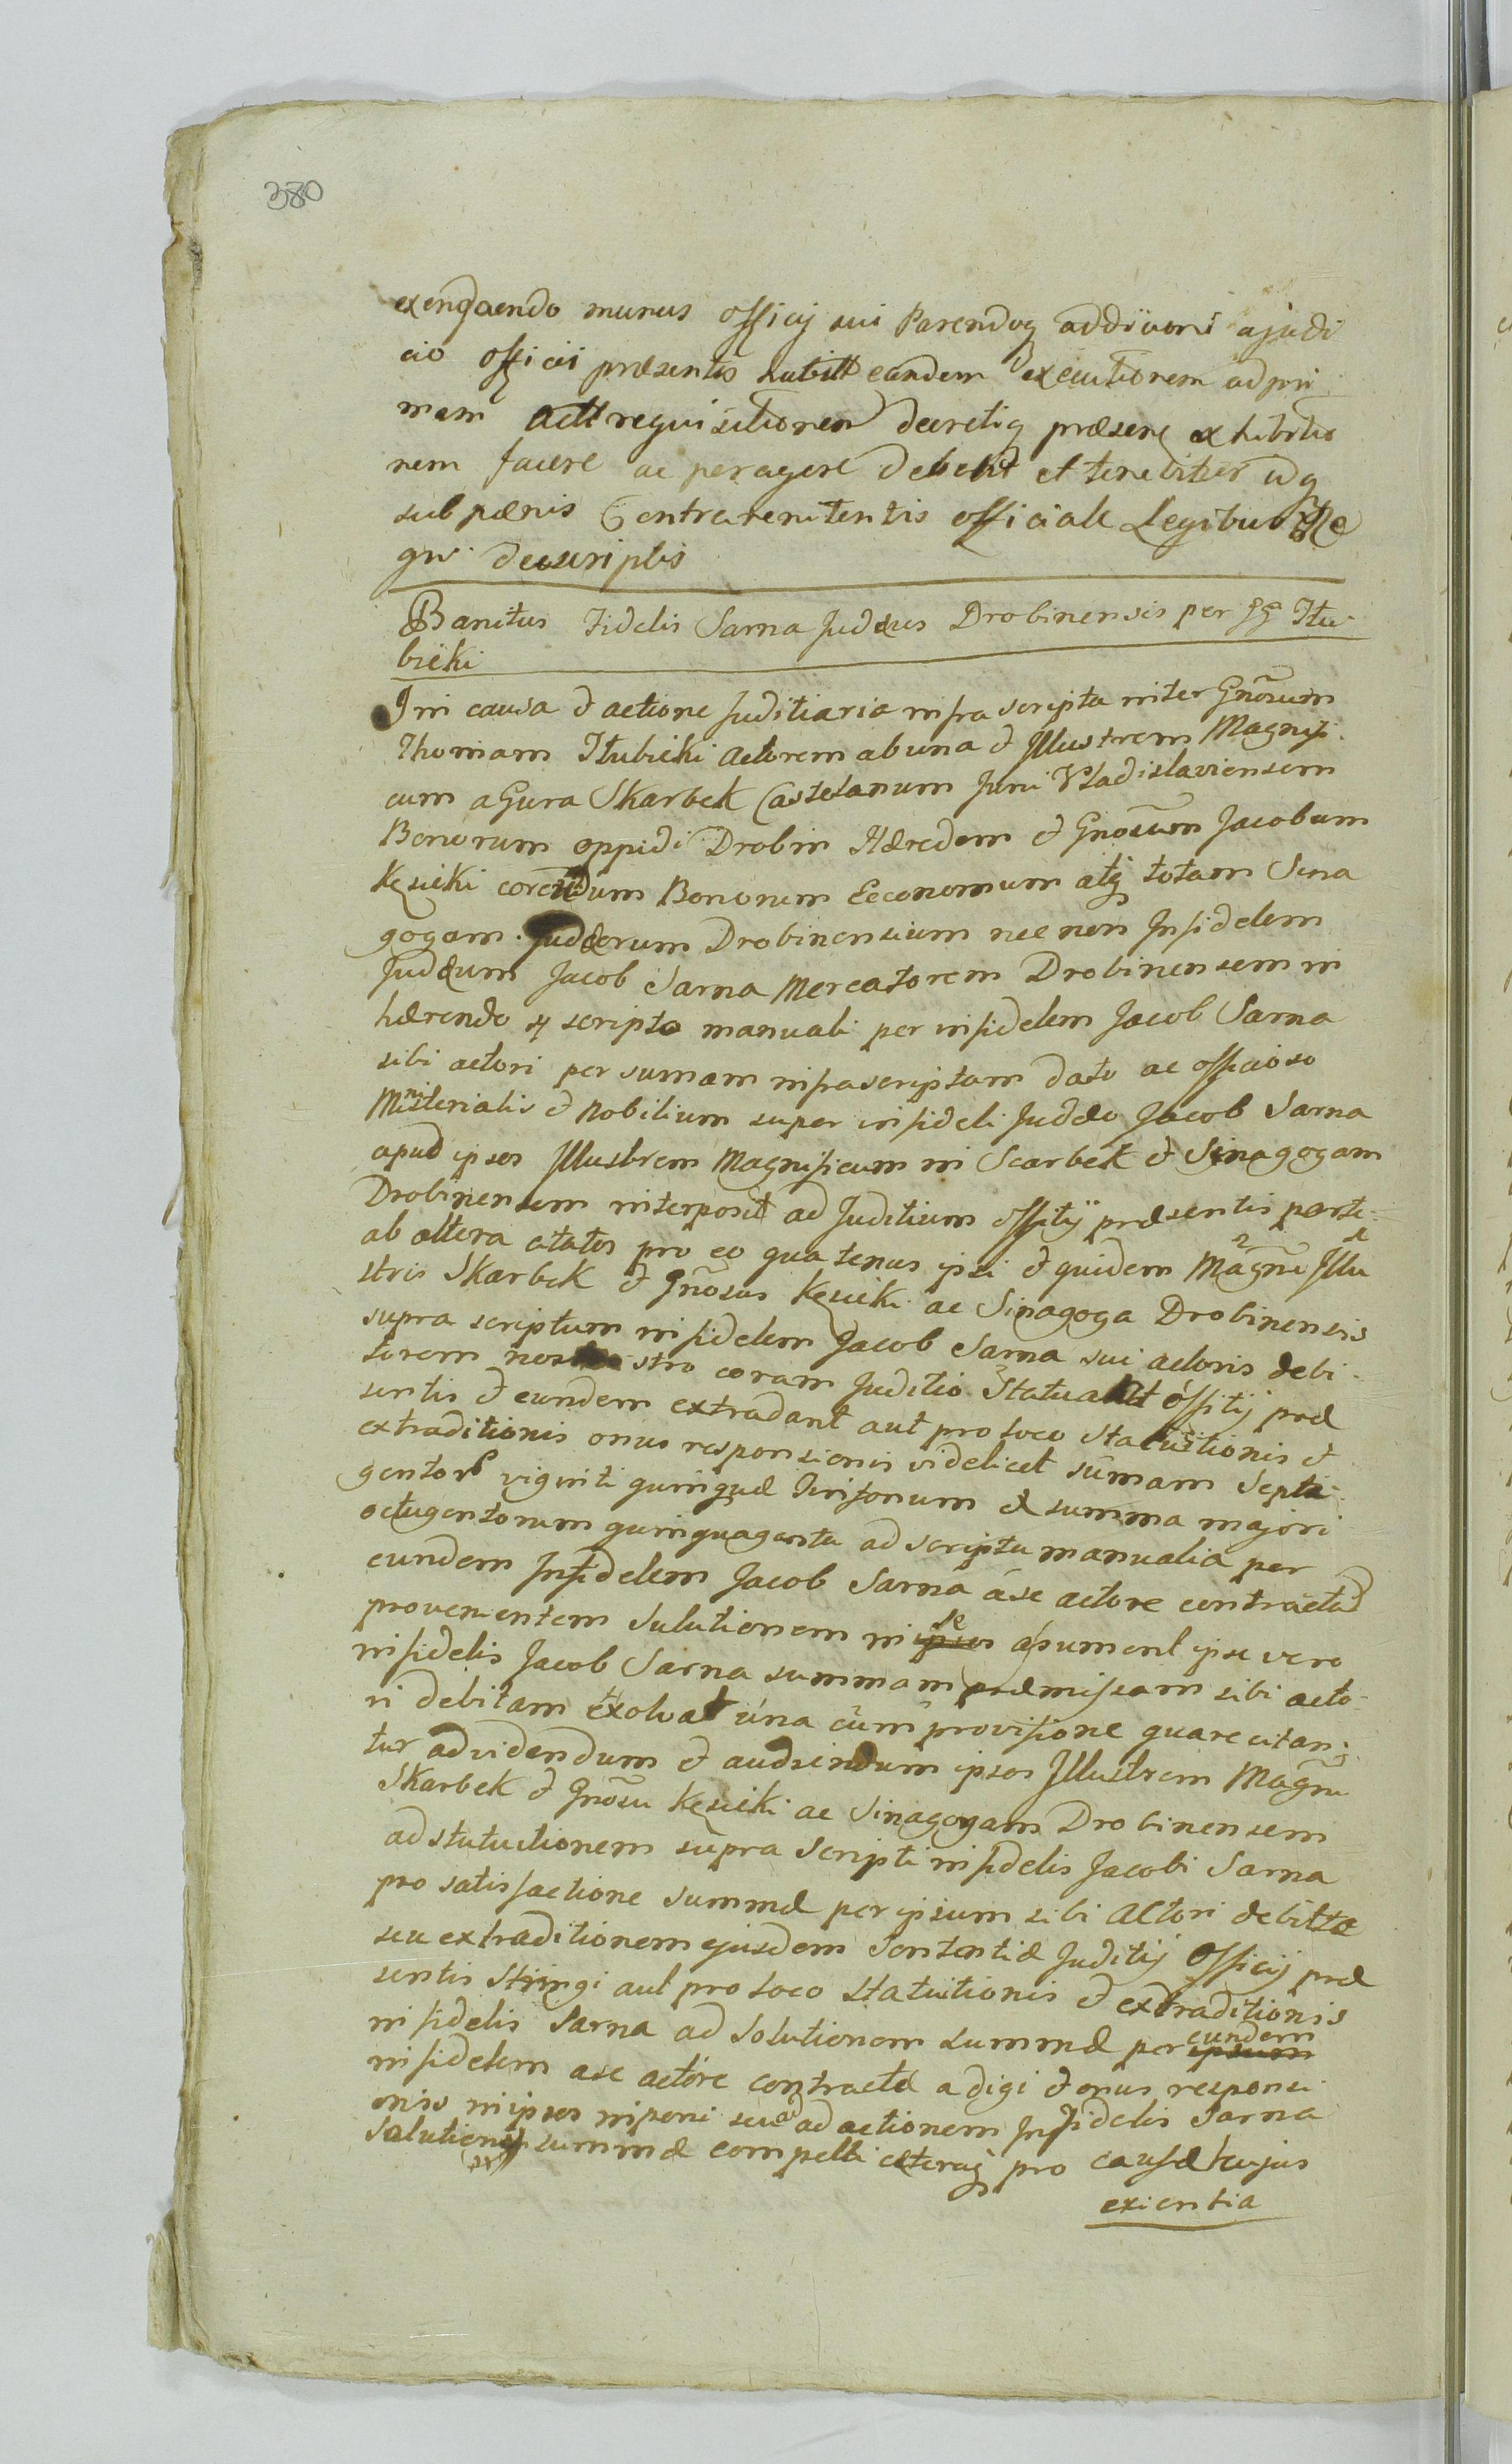 380
exengvendo munus officij sui Parendoq addivoni ajudi
cio officii præsentis habitt eandem executionem ad pri
mam Actt requisitionem decretiq præsens exhibitio
nem facere ac peragere debebit et tenebitur idq
sub pœnis Contra renitentis officiale Legibus Re
gni descriptis
Banitus Fidelis Sarna Judæus Drobinensis per Itu-
bicki
In causa & actione Juditiaria infra scripta inter Gnõsum
Thomam Itubicki Actorem ab una & Illustrem Magnifi-
cum a Gura Skarbek Castelanum Juni Vladislaviensem
Bonorum oppidi Drobin Hæredem & Gnosum Jacobum
Kęsicki eorundum Bonorum Eeconomum atq totam Sina
gogam Judæorum Drobinensium nec non Infidelem
Judæum Jacob Sarna Mercatorem Drobinensem in
hærendo scripto manuali per infidelem Jacob Sarna
sibi actori per sumam infrascriptam dato ac officioso
Ministerialis & Nobilium super infideli Judæo Jacob Sarna
apud ipsos Illustrem Magnificum in Scarbek & Sinagogam
Drobinensem interposit ad Juditium offitÿ præsentis parte
ab altera citatos pro eo quatenus ipsi & quidem Magñi Illu
stris Skarbek & Gnõsus Kęsicki ac Sinagoga Drobinensis
supra scriptum infidelem Jacob Sarna sui actoris debi-
torem nostro coram Juditio Statuant offitij præ
sentis & eundem extradant aut pro loco statuitionis &
extraditionis onus responsionis videlicet sumam Septi-
gentor viginti quinque Tinfonum & summa majori
octugentorum quinquaginta ad scripta manualia per
eundem Infidelem Jacob Sarna a se actore contracta
provenientem Solutionem in se assument ipse vero
infidelis Jacob Sarna summam præmissam sibi acto-
ri debitam exolvat una cum provisione quare citan-
tur ad videndum & audiendum ipsos Illustrem Magñu
Skarbek & Gnõsu Kęsicki ac Sinagogam Drobinensem
ad statuitionem supra Scripti infidelis Jacobi Sarna
pro satisfactione Summæ per ipsum sibi Actori debittæ
seu extraditionem ejusdem Sententiæ Juditij Officij præ
sentis Stringi aut pro loco statuitionis & extraditionis
infidelis Sarna ad Solutionem summæ per eundem
infidelem a se actore contractæ adigi & onus responsi
onis in ipsos inponi seu ad actionem Infidelis Sarna
Solutionem summæ compelli cæteraq pro causæ hujus
exientia